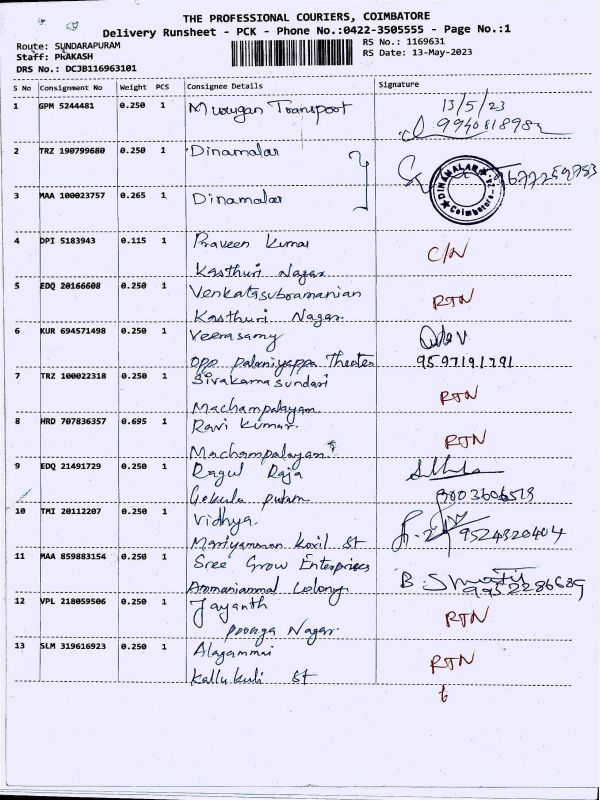 THE PROFESSIONAL COURIERS, COIMBATORE
Delivery Runsheet - PCK - Phone No.:0422-3505555 - Page No.:1
Route: SUNDARAPURAM
Staff: PRAKASH
DRS No.: DCJB116963101
RS No.: 1169631
RS Date: 13-May-2023
S No Consignment No Weight PCS Consignee Details Signature
1 GPM 5244481 0.250 1 Murugan Transport 13/5/23
2 TRZ 190799680 0.250 1 Dinamalar
3 MAA 100023757 0.265 1 Dinamalar
DINAMALAR
Coimbatore
4 DPI 5183943 0.115 1 Praveen Kumar C/N
Kasthuri Nagar
5 EDQ 20166608 0.250 1 Venkatasubramanian RTN
Kasthuri Nagar.
6 KUR 694571498 0.250 1 Veerasamy
opp palaniyappa Theater 9597191791
7 TRZ 100022318 0.250 1 Sivakama sundari RTN
Machampalayam.
8 HRD 707836357 0.695 1 Ravi Kumar. RTN
Machampalayam
9 EDQ 21491729 0.250 1 Ragul Raja
Gokula puram
10 TMI 20112207 0.250 1 Vidhya. 9524320404
Mariyamman Kovil St
11 MAA 859883154 0.250 1 Sree Grow Enterprises
Ammaniammal Colony 9952286689
12 VPL 218059506 0.250 1 Jayanth RTN
poonga Nagar.
13 SLM 319616923 0.250 1 Alagammai RTN
Kallukuli St